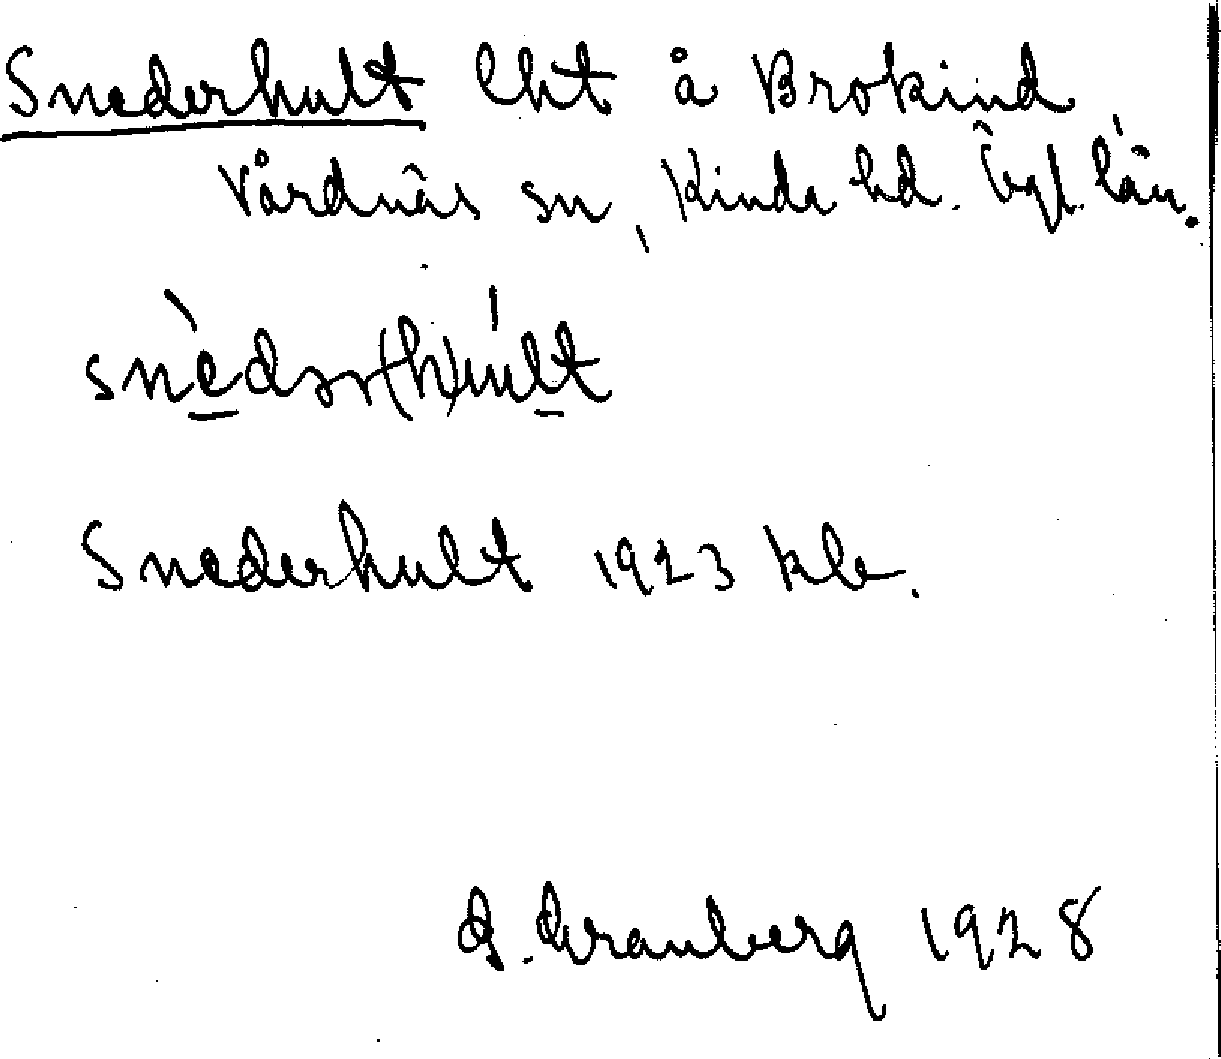 Snederhult lht å Brokind
Vårdnäs sn, Kinda hd. Ögl. län.
snèdər(h)últ
Snederhult 1923 klb.
1928